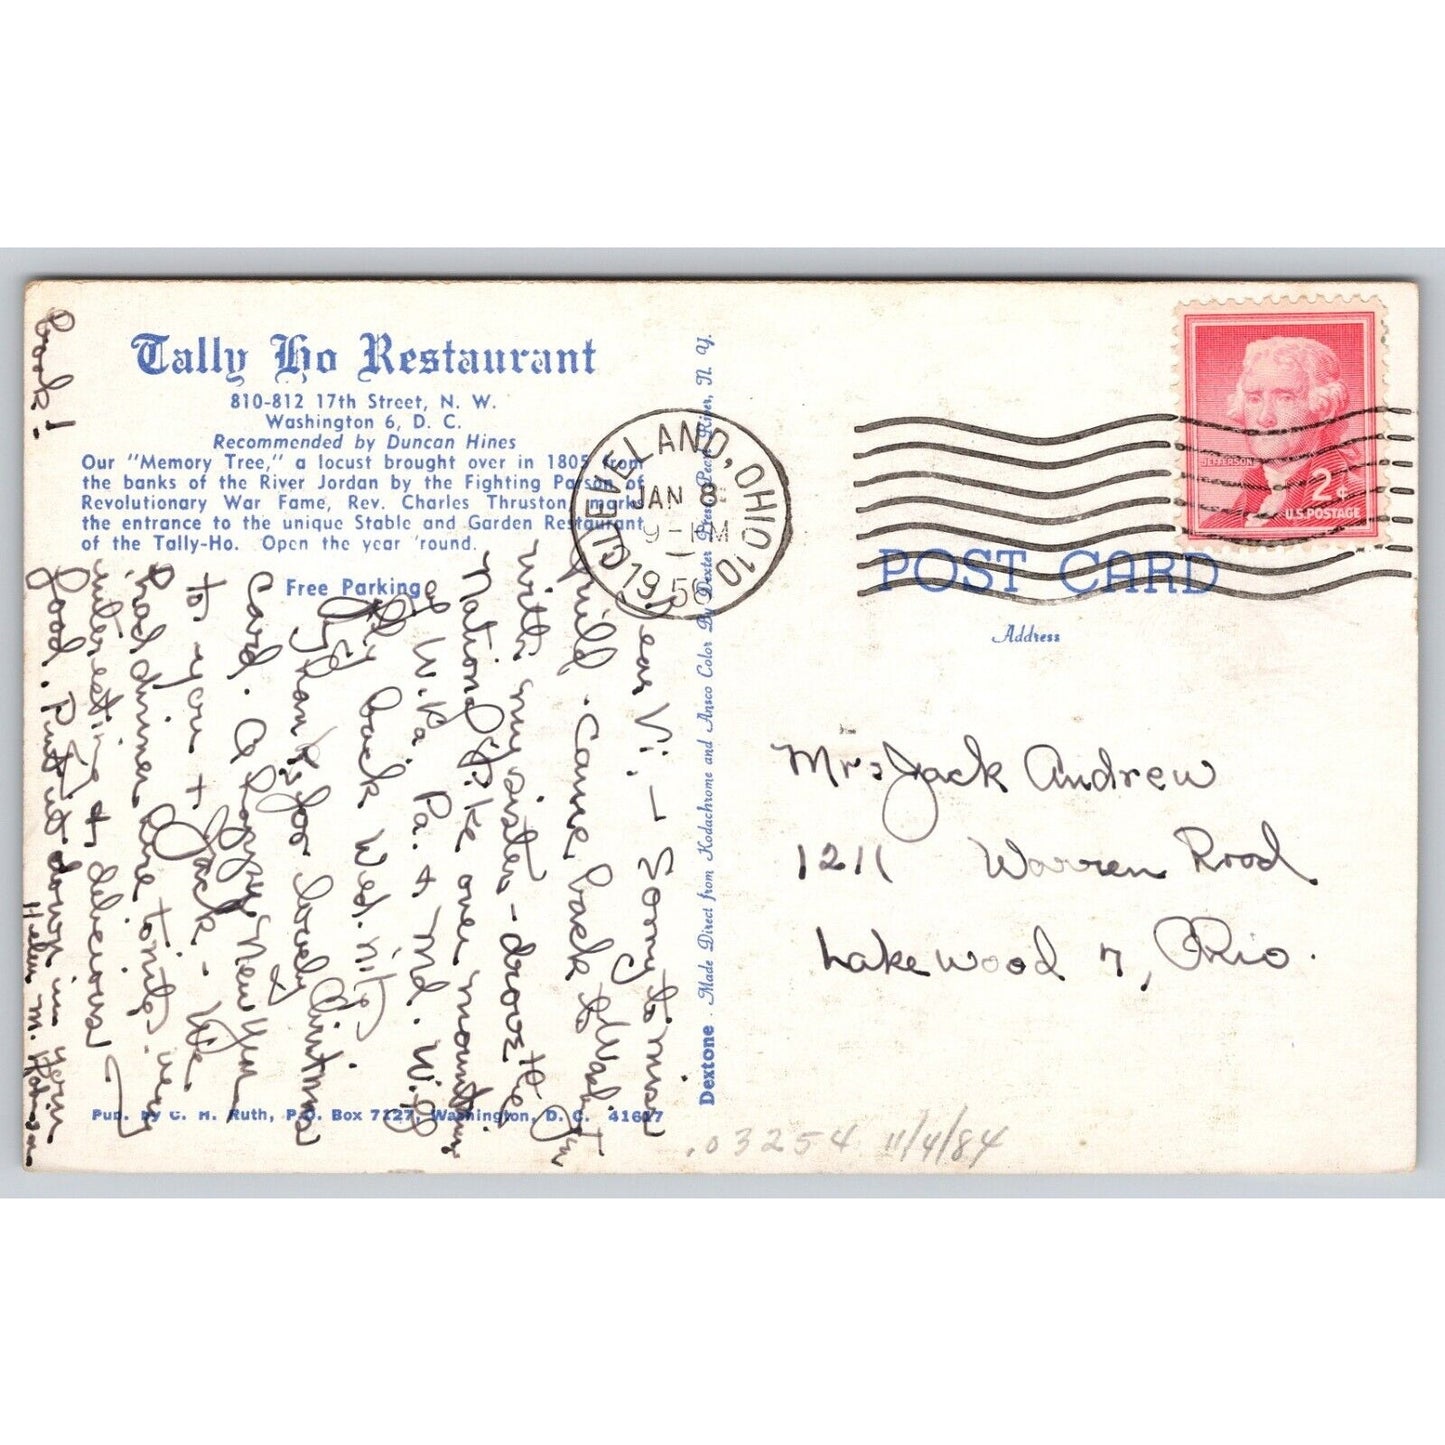 Tally Ho Restaurant
810-812 17th Street, N. W.
Washington 6, D. C.
Recommended by Duncan Hines
Our "Memory Tree," a locust brought over in 1805 from
the banks of the River Jordan by the Fighting Parson of
Revolutionary War Fame, Rev. Charles Thruston, marks
the entrance to the unique Stable and Garden Restaurant
of the Tally-Ho. Open the year 'round.
Free Parking
Dear Vi, - Sorry to miss
Guild. Came back to Washington
with my sister - drove the
National Pike over mountains
of W. Pa. & Md. Will
fly back Wed. nite.
Thanks for lovely Christmas
card. A Happy New Year
to you & Jack - We
had dinner here tonite, very
interesting & delicious
food. Put it down in your
book!
Helen M.
Pub. by C. H. Ruth, P.O. Box 7227, Washington, D. C. 41617
Dextone Made Direct from Kodachrome and Ansco Color By Dexter Press, Pearl River, N. Y.
CLEVELAND, OHIO 10
JAN 8
9 - PM
1956
JEFFERSON
2¢
U.S. POSTAGE
POST CARD
Address
Mrs Jack Andrew
1211 Warren Road.
Lakewood 7, Ohio.
.03254 11/4/84